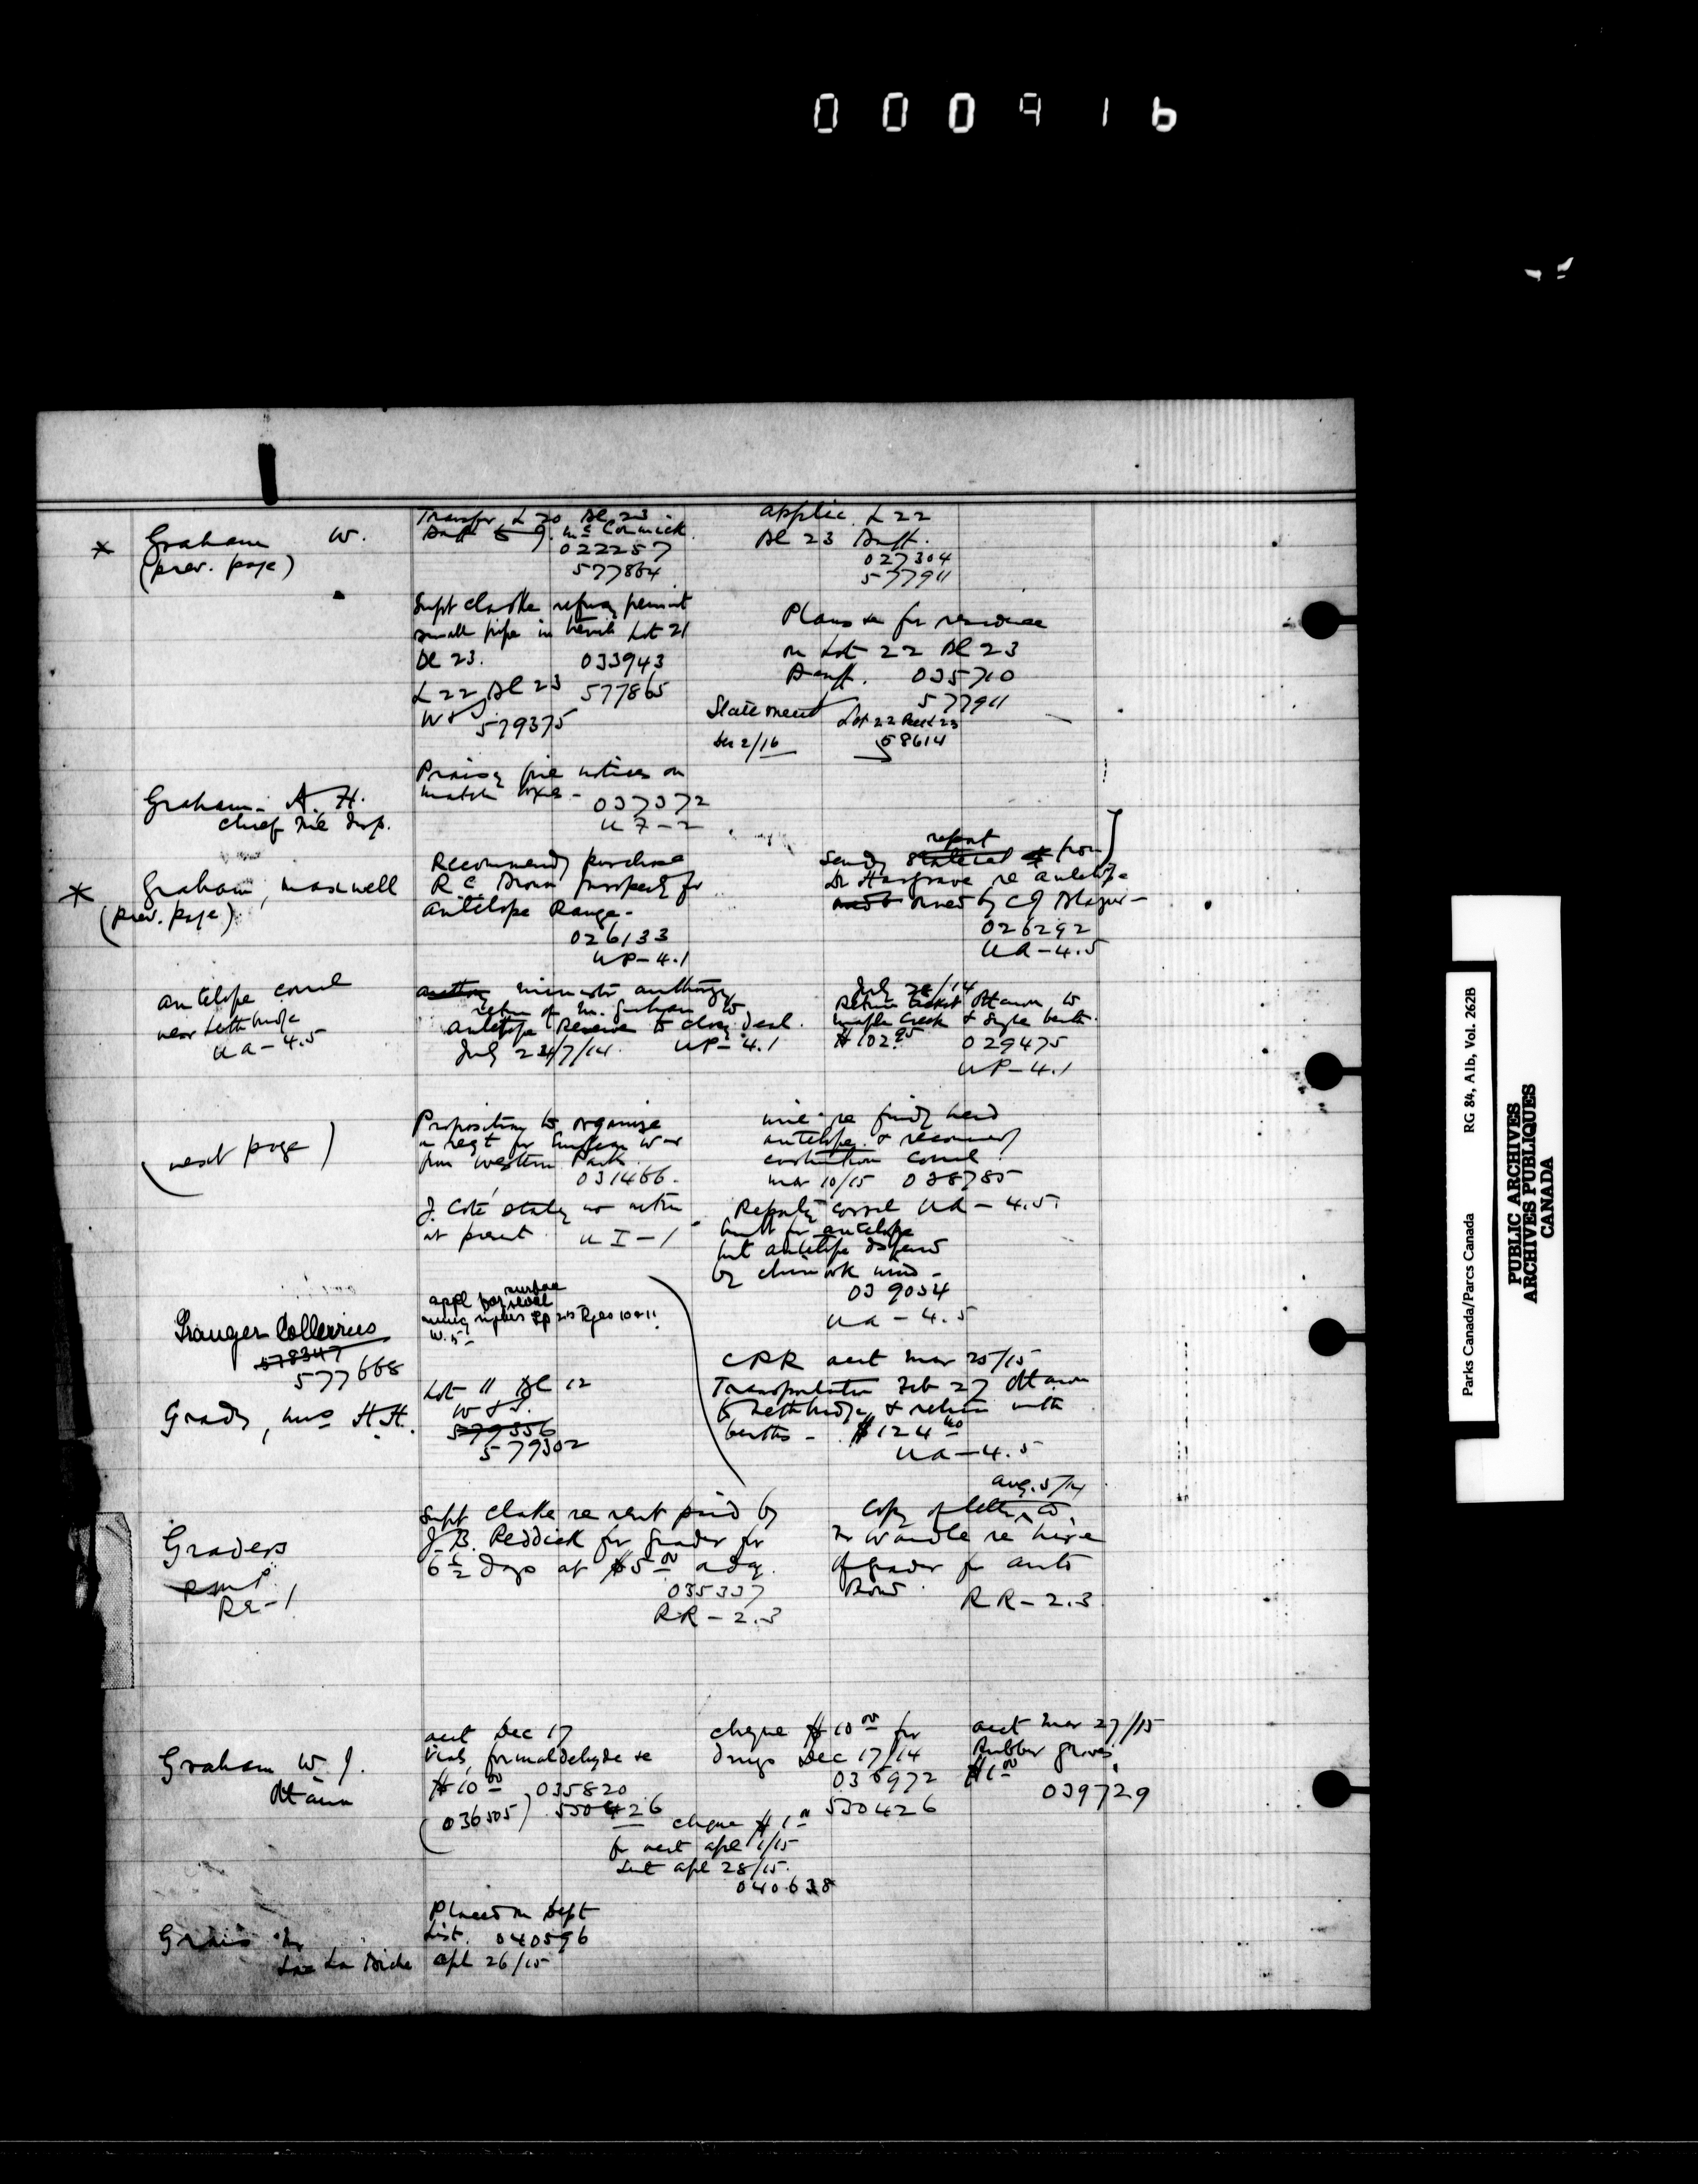 000916
* Graham W.
(prev. page)
Transfer L 20 Bl 23
Banff to J. McCormick
022257
577864
applic. L 22
Bl 23 Banff.
027304
577911
Supt Clarke refusing permit
small pipe in trench Lot 21
Bl 23. 033943
L 22 Bl 23 577865
W & S 579375
Plans &c for residence
on Lot 22 Bl 23
Banff. 035710
577911
Statement Lot 22 Block 23
Dec 2/16 58614
Graham. A. H.
Chief Fire Insp.
Praising fire notices on
match boxes -
037372
U 7-2
* Graham, Maxwell
(prev. page)
Recommends purchase
R C Brown property for
Antelope Range -
026133
UP-4.1
report
Sending from
Dr Hargrave re antelope
owned by C J Blazier -
026292
UA-4.5
antelope corral
near Lethbridge
UA-4.5
minister authorizing
return of M. Graham to
Antelope Reserve to close deal.
July 23/7/14. UP-4.1
July 28/14
Return ticket Ottawa to
Maple Creek & single berth.
$102.95 029475
UP-4.1
(next page)
Proposition to organize
a regt for European War
from Western Parks.
031466.
J. Coté stating no action
at present. UI-1
wire re finding herd
antelope & recommends
construction corral.
Mar 10/15 038785
Reporting corral UA-4.5.
built for antelope
but antelope dispersed
by chinook wind -
039034
UA-4.5
Granger Collieries
578347
577668
surface
appl for renewal
mining rights Tp 25 Rges 10 & 11
W. 5-
CPR acct Mar 25/15
Transportation Feb 27 Ottawa
to Lethbridge & return with
berths - $124.40
UA-4.5
Grady, Mrs H.H.
Lot 11 Bl 12
W & S.
579356
579302
Graders
RR-1
Supt Clarke re rent paid by
J. B. Reddick for grader for
6½ days at $5.00 a day.
035337
RR-2.3
Aug. 5/14
Copy of letter to
Mr Wardle re hire
of grader for auto
Road. RR-2.3
Graham W. J.
Ottawa
acct Dec 17
Vials, formaldehyde &c
$10.00 035820
(036505) 530426
cheque $10.00 for
drugs Dec 17/14
036972
530426
acct Mar 27/15
Rubber gloves
$1.00
039729
cheque $1.00
for acct Apl 1/15
sent Apl 28/15.
040638
Mr
Lac La Biche
Placed on Dept
List. 040596
Apl 26/15
Parks Canada/Parcs Canada RG 84, Alb, Vol. 262B
PUBLIC ARCHIVES
ARCHIVES PUBLIQUES
CANADA